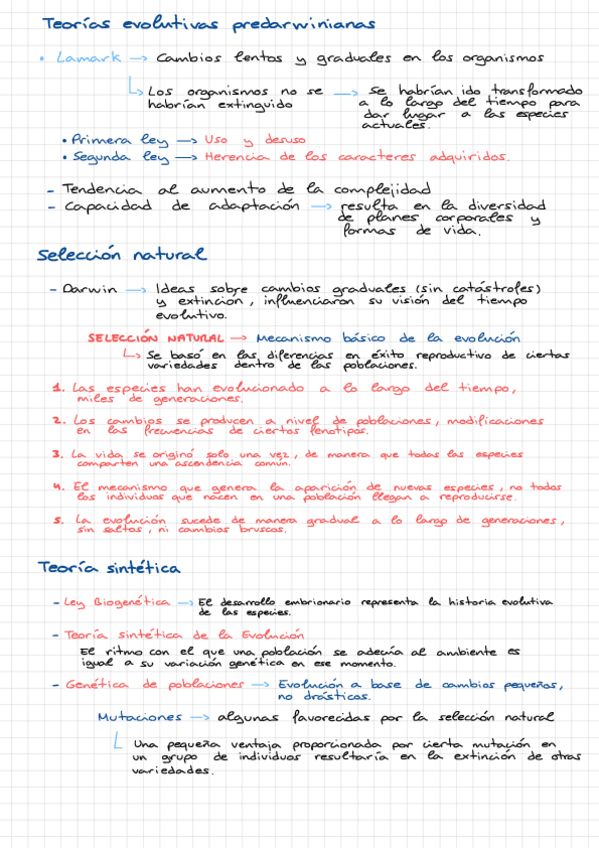 Teorías evolutivas predarwinianas
• Lamark → Cambios lentos y graduales en los organismos
↳ Los organismos no se → Se habrían ido transformado
habrían extinguido a lo largo del tiempo para
dar lugar a las especies
actuales.
• Primera ley → Uso y desuso
• Segunda ley → Herencia de los caracteres adquiridos.
- Tendencia al aumento de la complejidad
- Capacidad de adaptación → resulta en la diversidad
de planes corporales y
formas de vida.
Selección natural
- Darwin → Ideas sobre cambios graduales (sin catástrofes)
y extincion, influenciaron su visión del tiempo
evolutivo.
SELECCIÓN NATURAL → Mecanismo básico de la evolución
↳ Se basó en las diferencias en éxito reproductivo de ciertas
variedades dentro de las poblaciones.
1. Las especies han evolucionado a lo largo del tiempo,
miles de generaciones.
2. Los cambios se producen a nivel de poblaciones, modificaciones
en las frecuencias de ciertos fenotipos.
3. La vida se originó solo una vez, de manera que todas las especies
comparten una ascendencia común.
4. El mecanismo que genera la aparición de nuevas especies, no todos
los individuos que nacen en una población llegan a reproducirse.
5. La evolución sucede de manera gradual a lo largo de generaciones,
sin saltos, ni cambios bruscos.
Teoría sintética
- Ley Biogenética → El desarrollo embrionario representa la historia evolutiva
de las especies.
- Teoría sintética de la Evolución
El ritmo con el que una población se adecúa al ambiente es
igual a su variación genética en ese momento.
- Genética de poblaciones → Evolución a base de cambios pequeños,
no drásticos.
Mutaciones → algunas favorecidas por la selección natural
Una pequeña ventaja proporcionada por cierta mutación en
un grupo de individuos resultaría en la extinción de otras
variedades.